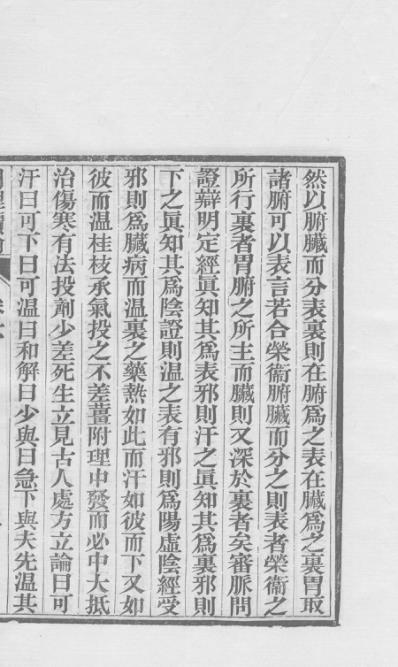 然以腑臟而分表裏則在腑爲之表在臟爲之裏胃取
諸腑可以表言若合榮衞腑臟而分之則表者榮衞之
所行裏者胃腑之所主而臟則又深於裏者矣審脈問
證辯明定經眞知其爲表邪則汗之眞知其爲裏邪則
下之眞知其爲陰證則温之表有邪則爲陽虛陰經受
邪則爲臟病而温裏之藥熱如此而汗如彼而下又如
彼而温桂枝承氣投之不差薑附理中發而必中大抵
治傷寒有法投劑少差死生立見古人處方立論曰可
汗曰可下曰可温曰和解曰少與曰急下與夫先温其